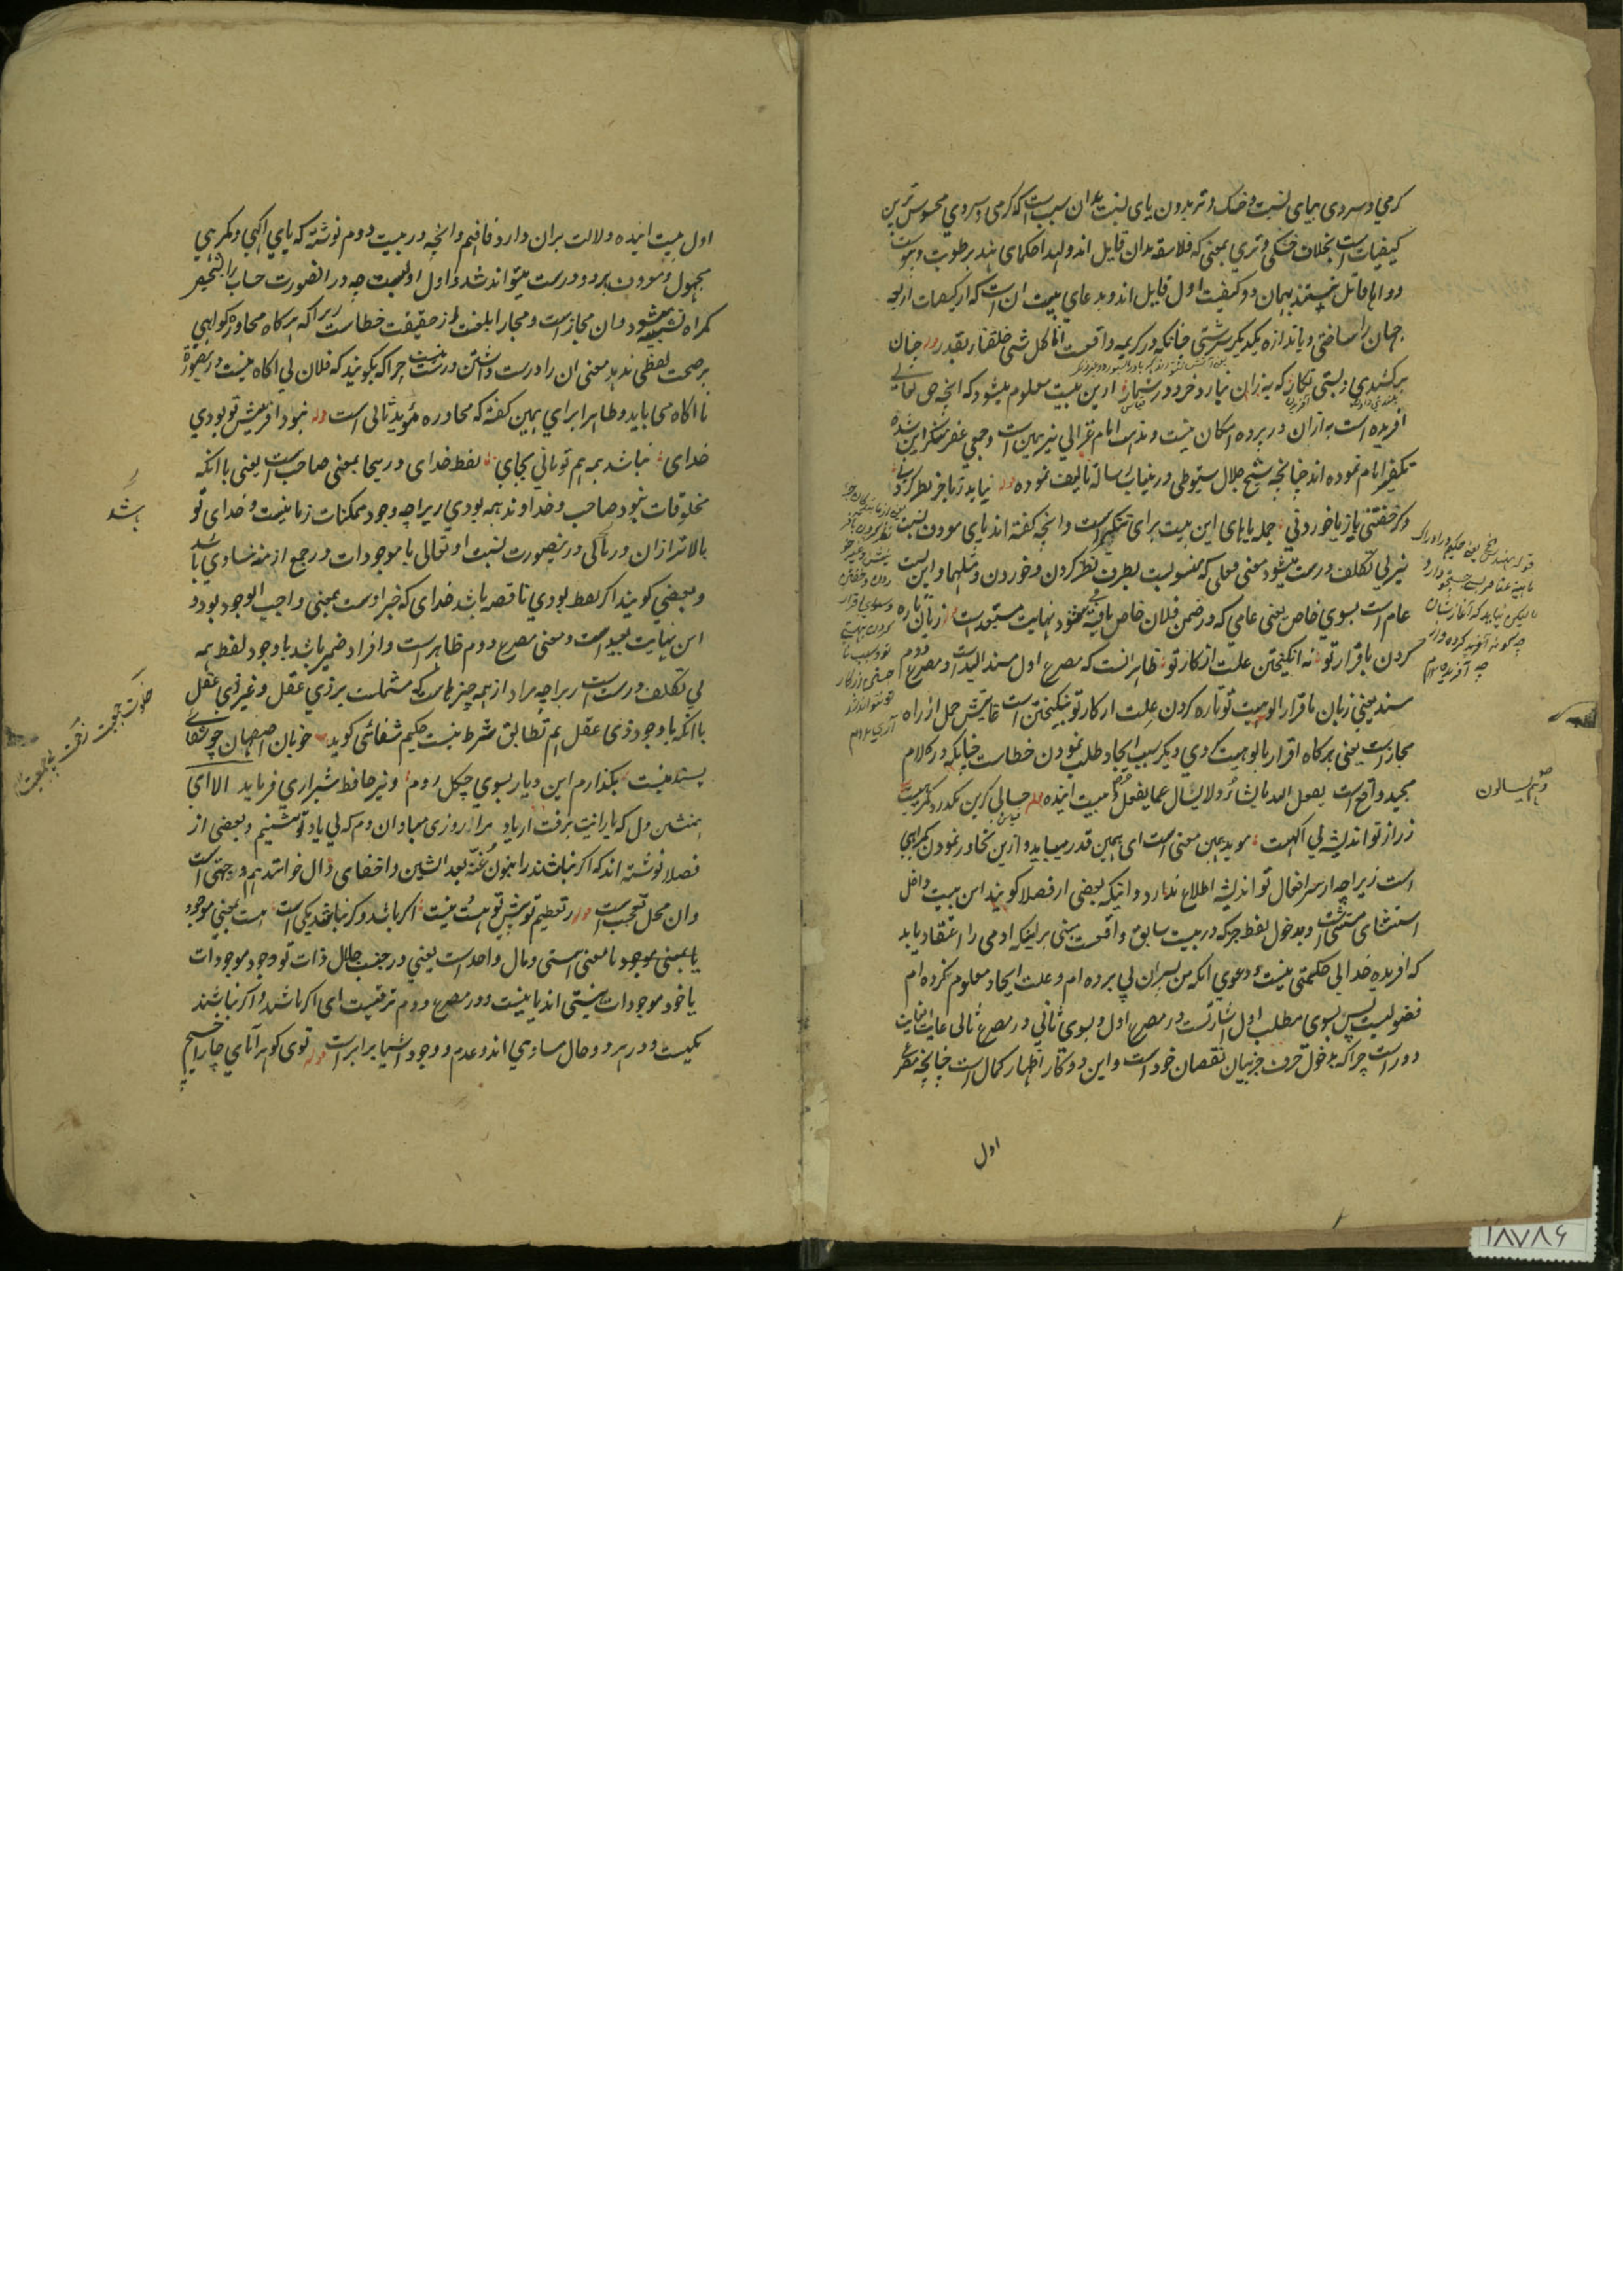 کرمی و سردی بیای نسبت و خشک و تر بدون یای نسبت بدان سبب است که کرمی و سردی محسوس ترین
کیفیات است بخلاف خشکی و تری بمعنی که فلاسفه بدان قایل اند و لهذا حکمای هند برطوبت و یبوست
دو ابا قائل نیستند بهمان دو کیفیت اول قایل اند و مدعای بیت ان است که از کیفیات اربعه
جهان را ساختی و باندازه یکدیکر سرشتی چنانکه در کریمه واقعست انا کل شی خلقناه بقدر وله چنان
برکشیدی و بستی نکار که به زان نیارد خرد در شمار ازین بیت معلوم میشود که انچه حق تعالی
افریده است به ازان در پرده امکان نیست و مذهب امام غزالی نیز همین است و جمعی منکر این شده
تکفیر امام نموده اند چنانچه شیخ جلال سیوطی درینباب رساله تالیف نموده وله نیاید ز ما جز نظر کردنی
دکر خفتنی باز یا خوردنی جمله یاهای این بیت برای تنکیر است و انچه کفته اند یای مودن نسبت
نیز بی تکلف درست میشود معنی فعلی که منسوبست بطرف نظر کردن و خوردن و مثلهما و این نسبت
عام است بسوی خاص یعنی عامی که در ضمن فلان خاص یافته شود نهایت مستبعد است زبان تازه
کردن باقرار تو نه انکیختن علت از کار تو ظاهر انست که مصرع اول مسند الیه است و مصرع دوم
مسند یعنی زبان باقرار الوهیت تو تازه کردن علت از کار تو نینکیختن است غایتش حمل از راه
مجاز است یعنی هرکاه اقرار بالوهیت کردی دیکر سبب ایجاد طلب نمودن خطاست چنانکه در کلام
مجید واقع است یفعل الله ما یشاء و لا یسال عما یفعل بیت اینده وله حسابی کزین بکذرد کمرهیست
ز راز تو اندیشه بی اکهست موید همین معنی است ای همین قدر میباید و ازین تجاوز نمودن کمراهی
است زیراچه از سر افعال تو اندیشه اطلاع ندارد و اینکه بعضی از فضلا کویند این بیت داخل
استثنای مستثنی است و مدخول لفظ جز که در بیت سابق واقعست مبنی بر اینکه ادمی را اعتقاد باید
که افریده خدا بی حکمتی نیست و دعوی انکه من بسر ان پی برده ام و علت ایجاد معلوم کرده ام
فضولیست پس بسوی مطلب اول اشارتست در مصرع اول و بسوی ثانی در مصرع ثانی غایت
دور است چرا که مدخول حرف جز بیان نقصان خود است و این دو کار اظهار کمال است چنانچه مصرع
اول
وهم یسالون
۱۸۷۸۶
اول بیت اینده دلالت بران دارد فافهم و انچه در بیت دوم نوشته که یای اکهی و کمرهی
مجهول و مودن بردو درست میتواند شد و اول اولیست چه در انصورت حساب را بشخص
کمراه تشبیه میشود و ان مجاز است و مجاز ابلغست از حقیقت خطاست زیرا که هرکاه محاوره کواهی
بر صحت لفظی ندهد معنی ان را درست داشتن درست نیست چرا که بکویند که فلان بی اکاه نیست درینصورة
نااکاه می باید و ظاهرا برای همین کفته که محاوره مؤید ثانی است وله نبود افرینش تو بودی
خدای نباشد همه هم تو باشی بجای لفظ خدای درینجا بمعنی صاحب است یعنی با انکه
مخلوقات نبود صاحب و خداوند همه بودی زیراچه وجود ممکنات زمانیست و خدای تو
بالاتر ازان و در باقی درینصورت نسبت او تعالی با موجودات و رجع ازمنه مساوی باشد
و بعضی کویند اکر لفظ بودی ناقصه باشد خدای که خبر اوست بمعنی واجب الوجود بود و
این نهایت بعید است و معنی مصرع دوم ظاهر است و افراد ضمیر باشد باوجود لفظ همه
بی تکلف درست است زیراچه مراد از همه چیزهاست که مشتملست بر ذی عقل و غیر ذی عقل
باانکه باوجود ذی عقل هم تطابق شرط نیست حکیم شفائی کوید خوبان اصفهان چو شفائی
پسند نیست بکذارم این دیار بسوی چکل روم و نیز حافظ شیرازی فرماید الا ای
همنشین دل که یارانت برفت از یاد مرا روزی مباد ان دم که بی یاد تو بنشینم و بعضی از
فضلا نوشته اند که اکر نباشند را بنون غنه بعد الشین و اخفای دال خوانند هم وجهی است
وان محل تعجب است وله تعظیم تو پیش تو هست نیست اکر باشد و کر نباشد یکی است هست بمعنی موجود
یا بمعنی موجود با معنی هستی و مال واحد است یعنی در جنب جلال ذات تو وجود موجودات
یا خود موجودات نیستی اند یا نیست و در مصرع دوم ترقیست ای اکر باشند و اکر نباشند
یکیست و در هر دو حال مساوی اند و عدم و وجود اشیا برابر است وله توی کوهر آمای چار اخشیج
باشد